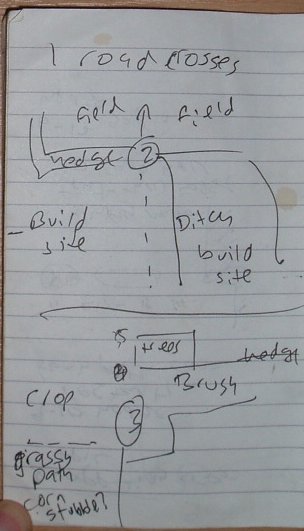 1 road crosses
field field
hedge 2
Build
site
Ditch
build
site
5
trees
4
hedge
Brush
crop
3
grassy
path
corn
stubble?